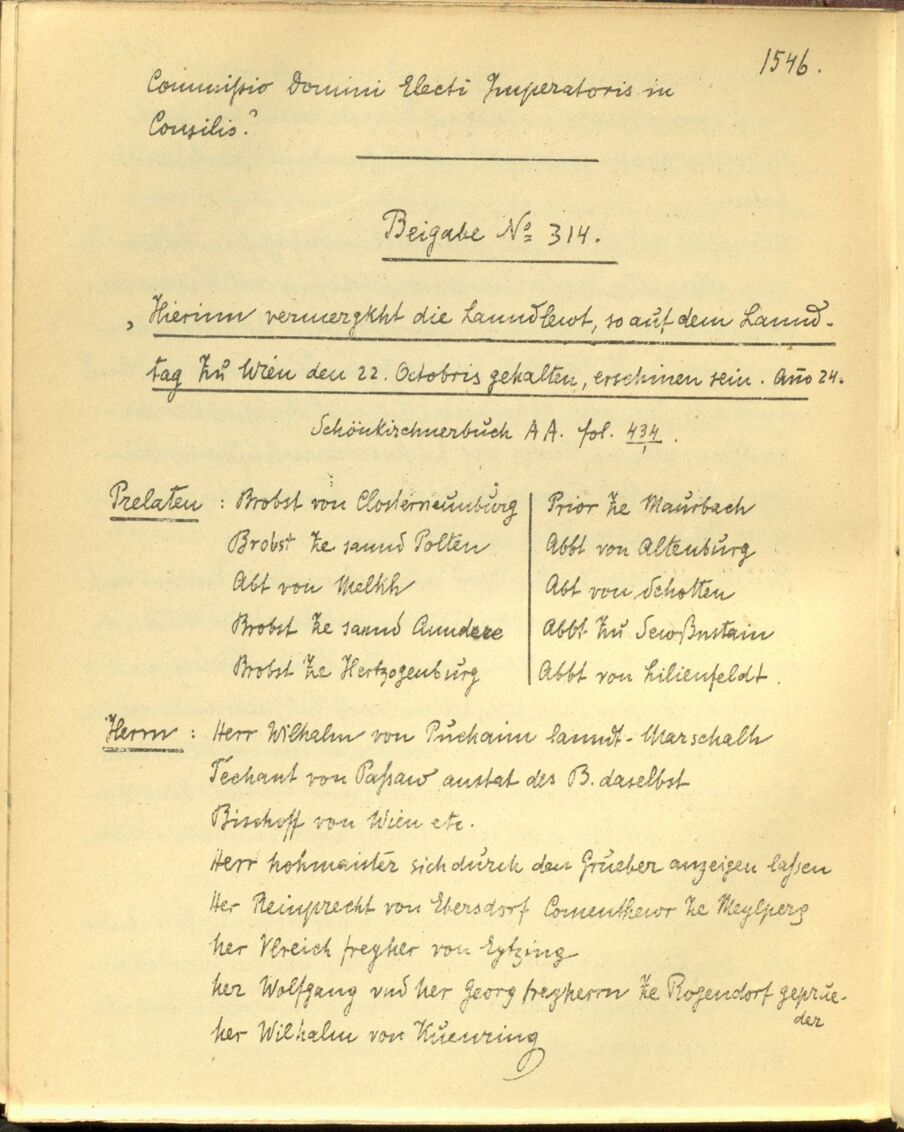 1546.
Commißio Domini Electi Imperatoris in
Consilis.?
Beigabe No 314.
„Hierinn vermergkht die Lanndlewt, so auf dem Lannd-
tag zu Wien den 22. Octobris gehalten, erschinen sein. Año 24.
Schönkirchnerbuch AA. fol. 434/1.
Prelaten : Brobst von Closterneunburg
Brobst ze sannd Polten
Abt von Melkh
Brobst ze sannd Anndree
Brobst ze Hertzogenburg
Prior ze Maurbach
Abbt von Altenburg
Abt von Schotten
Abbt zu Sewßnstain
Abbt von Lilienfeldt.
Herrn : Herr Wilhalm von Puchaim lanndt-Marschalh
Techant von Paßaw anstat des B. daselbst
Bischoff von Wien etc.
Herr hohmaister sich durch den Grueber anzeigen laßen
Her Reinprecht von Ebersdorf Comenthewr ze Meylperg
her Vlreich freyher von Eytzing
her Wolfgang vnd her Georg freyherrn ze Rogendorf geprue-
der
her Wilhalm von Kuenring